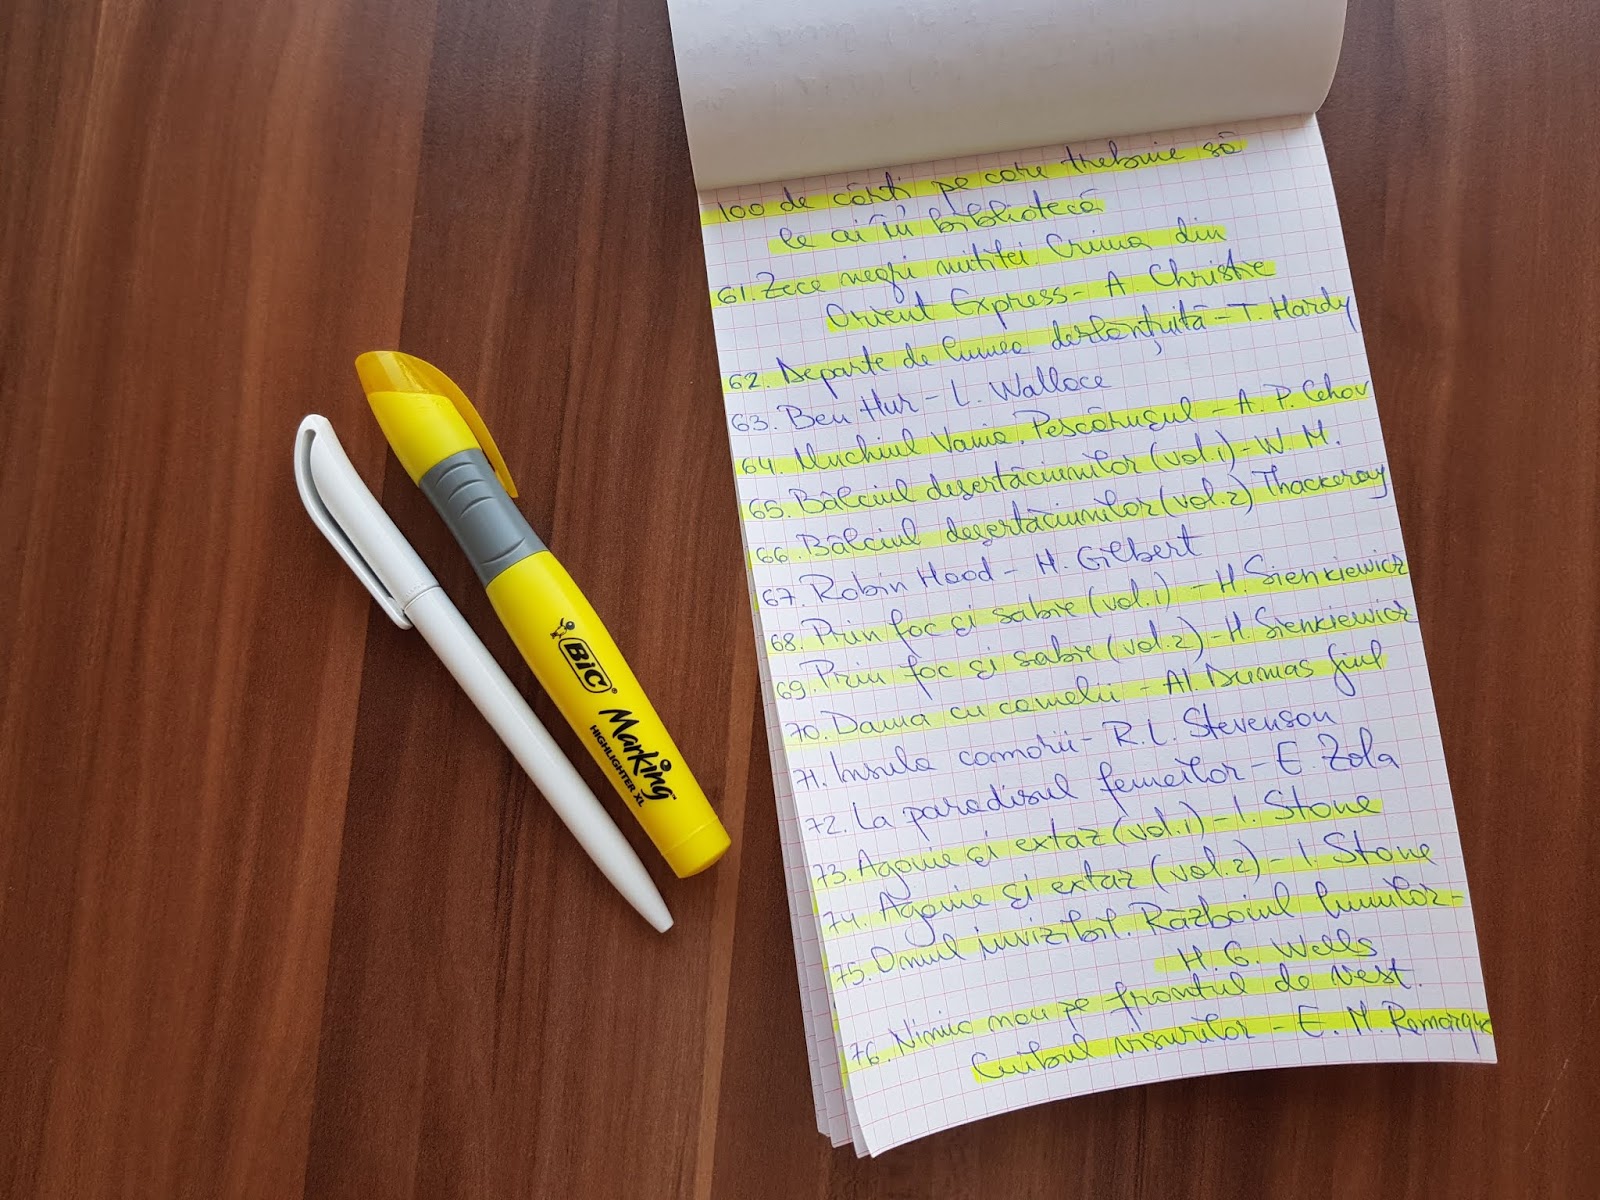 100 de cărți pe care trebuie să
le ai în bibliotecă
61. Zece negri mititei. Crima din
Orient Express - A. Christie
62. Departe de lumea dezlănțuită - T. Hardy
63. Ben Hur - L. Wallace
64. Unchiul Vania. Pescărușul - A. P. Cehov
65. Bâlciul deșertăciunilor (vol. 1) - W. M.
66. Bâlciul deșertăciunilor (vol. 2) Thackeray
67. Robin Hood - H. Gilbert
68. Prin foc și sabie (vol. 1) - H. Sienkiewicz
69. Prin foc și sabie (vol. 2) - H. Sienkiewicz
70. Dama cu camelii - Al. Dumas fiul
71. Insula comorii - R. L. Stevenson
72. La paradisul femeilor - E. Zola
73. Agonie și extaz (vol. 1) - I. Stone
74. Agonie și extaz (vol. 2) - I. Stone
75. Omul invizibil. Războiul lumilor -
H. G. Wells
76. Nimic nou pe frontul de vest.
Cuibul visurilor - E. M. Remarque
BIC
Marking
HIGHLIGHTER XL